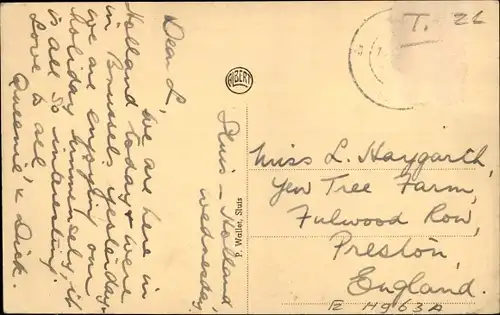 Sluis – Holland
Wednesday.
Dear L, We are here in
Holland today & were
in Brussels yesterday,
we are enjoying our
holiday immensely, it
is all so interesting.
Love to all
Queenie & Dick.
ALBERT
F. Wallet, Sluis
T. 26
Miss L. Haygarth,
Yew Tree Farm,
Fulwood Row,
Preston,
England.
H963A